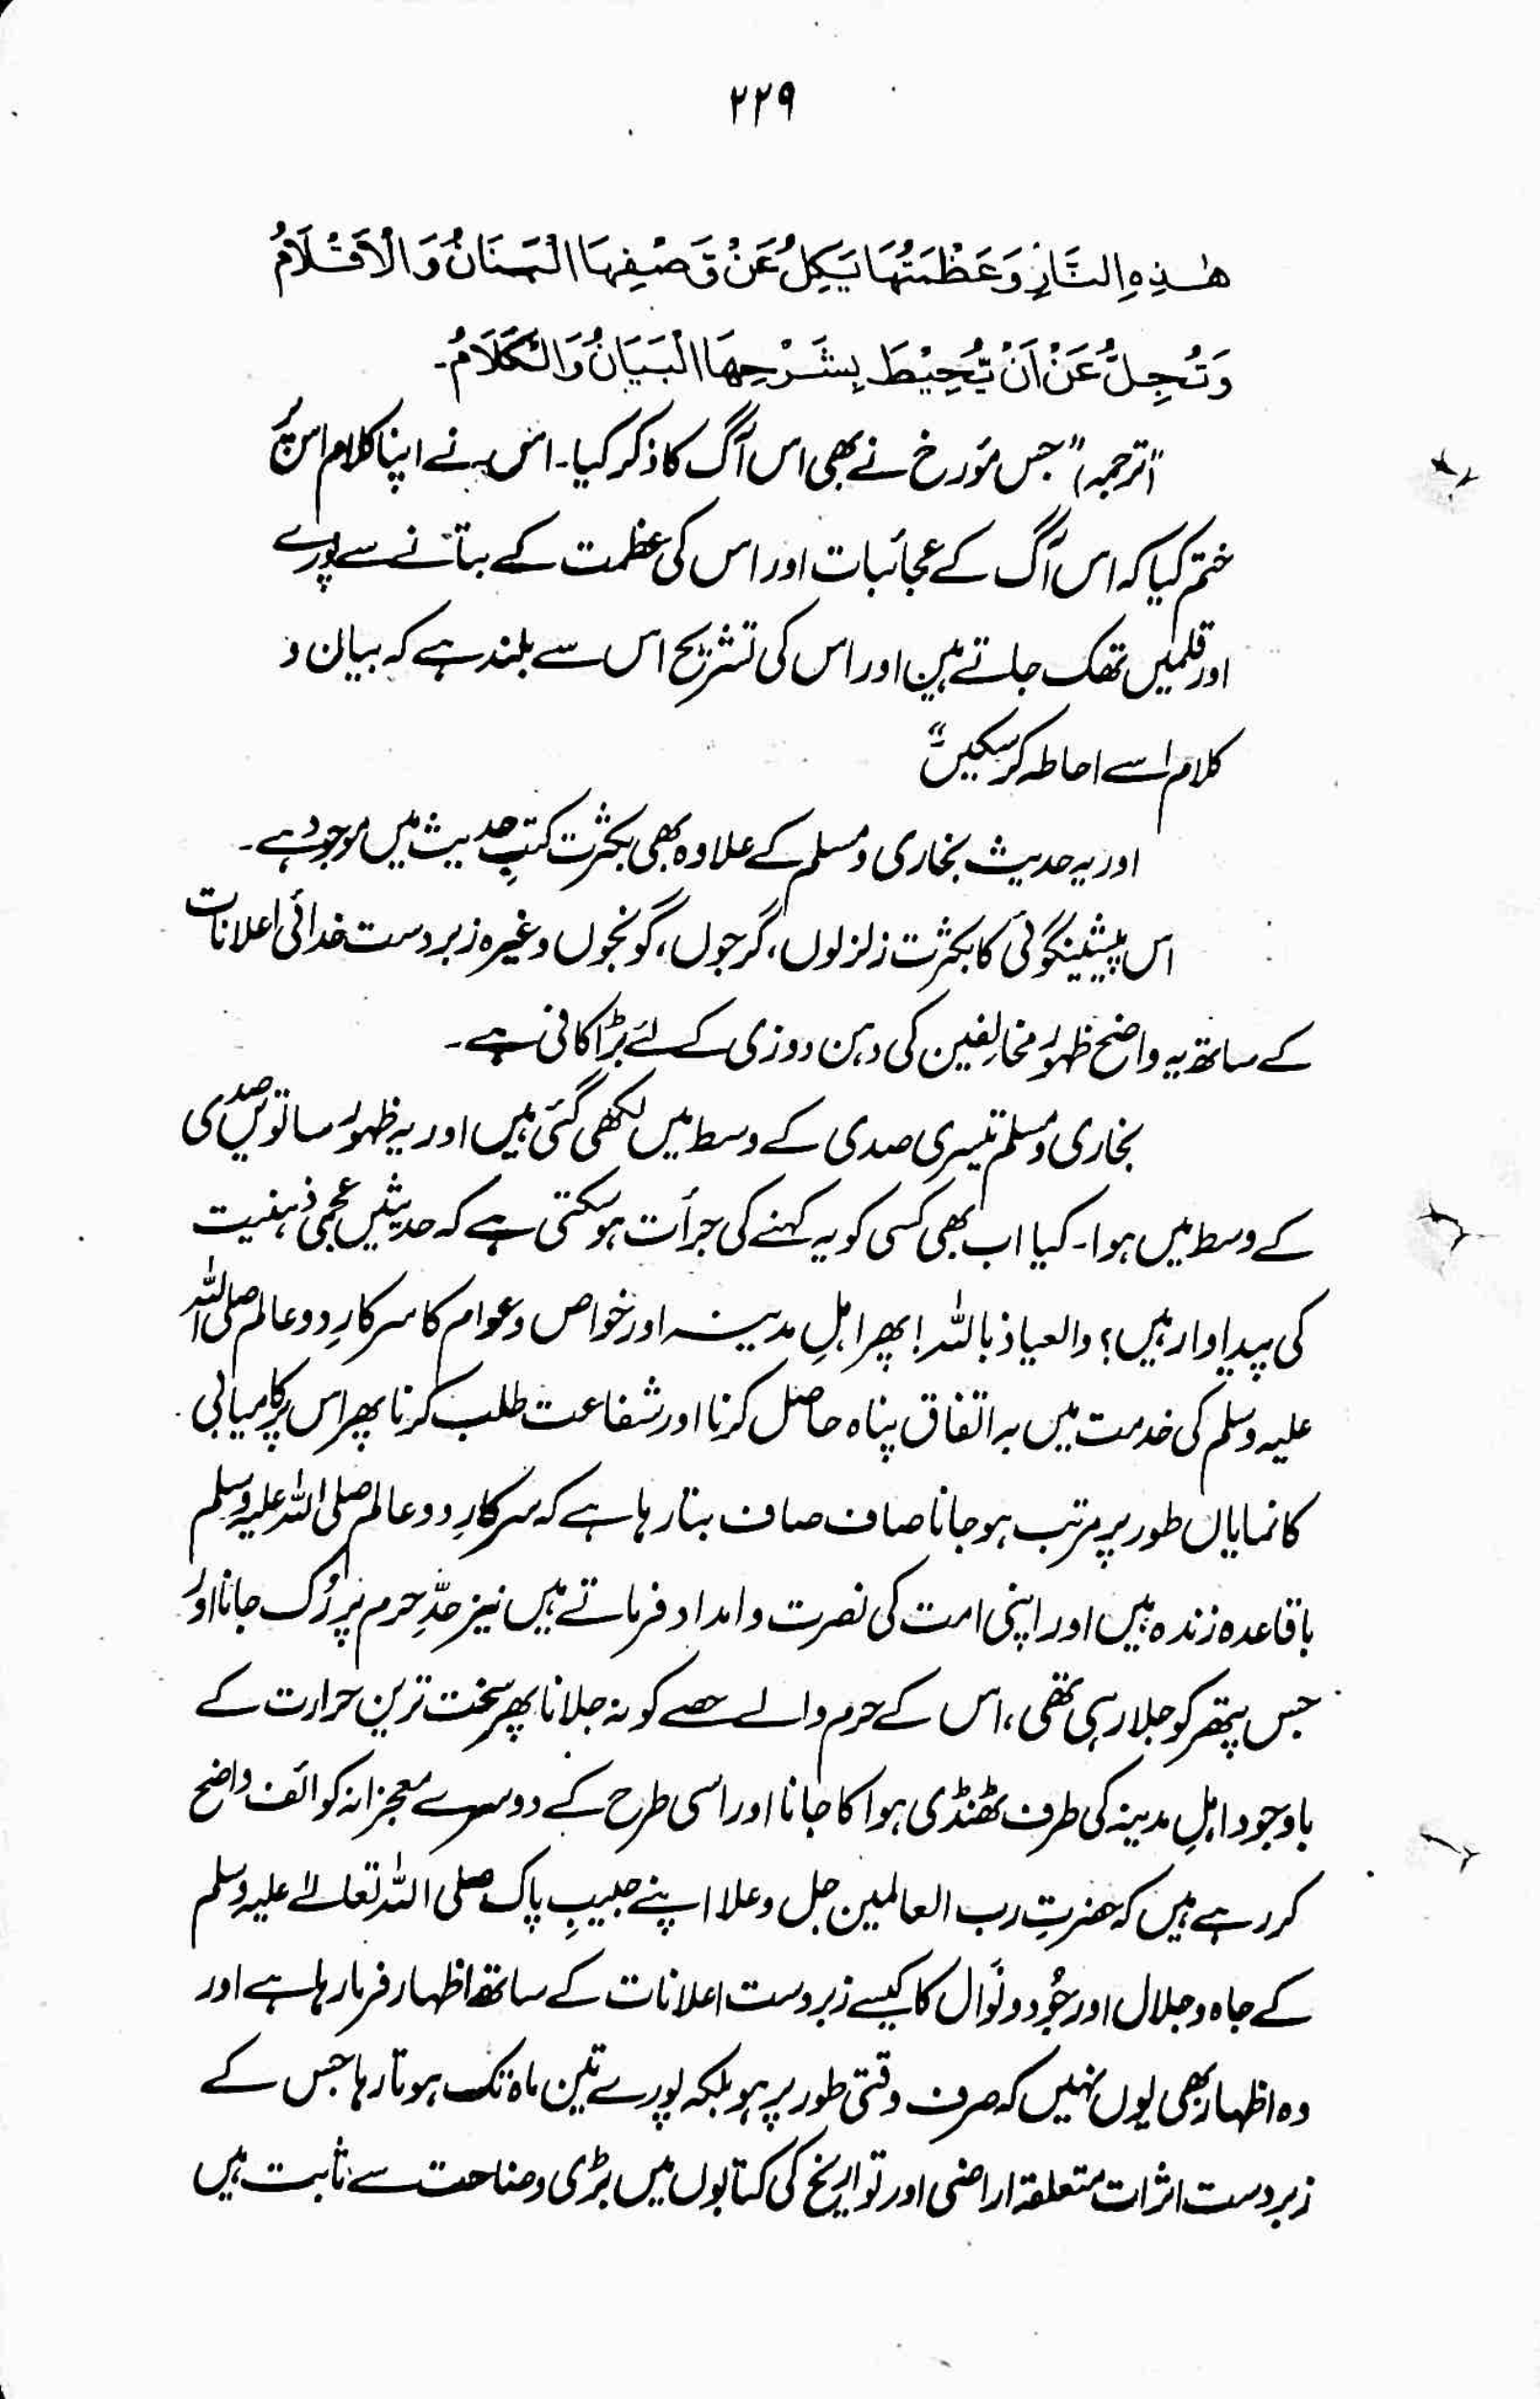 ۲۲۹
هٰذِهِ النَّارِ وَعَظْمَتُهَا يَكِلُّ عَنْ وَصْفِهَا الْبَنَانُ وَالْاَقْلَامُ
وَتُجِلُّ عَنْ اَنْ يُّحِيْطَ بِشَرْحِهَا الْبَيَانُ وَالْكَلَامُ۔
(ترجمہ) "جس مؤرخ نے بھی اس آگ کا ذکر کیا۔ اس نے اپنا کلام اس پر
ختم کیا کہ اس آگ کے عجائبات اور اس کی عظمت کے بتانے سے پورے
اور قلمیں تھک جاتے ہیں اور اس کی تشریح اس سے بلند ہے کہ بیان و
کلام اسے احاطہ کر سکیں"
اور یہ حدیث بخاری و مسلم کے علاوہ بھی بکثرت کتبِ حدیث میں موجود ہے۔
اس پیشینگوئی کا بکثرت زلزلوں، گرجوں، گونجوں وغیرہ زبردست خدائی اعلانات
کے ساتھ یہ واضح ظہور مخالفین کی دہن دوزی کے لئے بڑا کافی ہے۔
بخاری و مسلم تیسری صدی کے وسط میں لکھی گئی ہیں اور یہ ظہور ساتویں صدی
کے وسط میں ہوا۔ کیا اب بھی کسی کو یہ کہنے کی جرأت ہو سکتی ہے کہ حدیثیں عجمی ذہنیت
کی پیداوار ہیں؟ والعیاذ باللہ! پھر اہلِ مدینہ اور خواص و عوام کا سرکارِ دو عالم صلی اللہ
علیہ وسلم کی خدمت میں بہ اتفاق پناہ حاصل کرنا اور شفاعت طلب کرنا پھر اس پر کامیابی
کا نمایاں طور پر مرتب ہو جانا صاف صاف بتا رہا ہے کہ سرکارِ دو عالم صلی اللہ علیہ وسلم
باقاعدہ زندہ ہیں اور اپنی امت کی نصرت و امداد فرماتے ہیں نیز حدِّ حرم پر رُک جانا اور
جس پتھر کو جلا رہی تھی، اس کے حرم والے حصے کو نہ جلانا پھر سخت ترین حرارت کے
باوجود اہلِ مدینہ کی طرف ٹھنڈی ہوا کا جانا اور اسی طرح کے دوسرے معجزانہ کوائف واضح
کر رہے ہیں کہ حضرتِ رب العالمین جل و علا اپنے حبیبِ پاک صلی اللہ تعالےٰ علیہ وسلم
کے جاہ و جلال اور جُود و نَوال کا کیسے زبردست اعلانات کے ساتھ اظہار فرما رہا ہے اور
وہ اظہار بھی یوں نہیں کہ صرف وقتی طور پر ہو بلکہ پورے تین ماہ تک ہوتا رہا جس کے
زبردست اثرات متعلقہ اراضی اور تواریخ کی کتابوں میں بڑی وضاحت سے ثابت ہیں